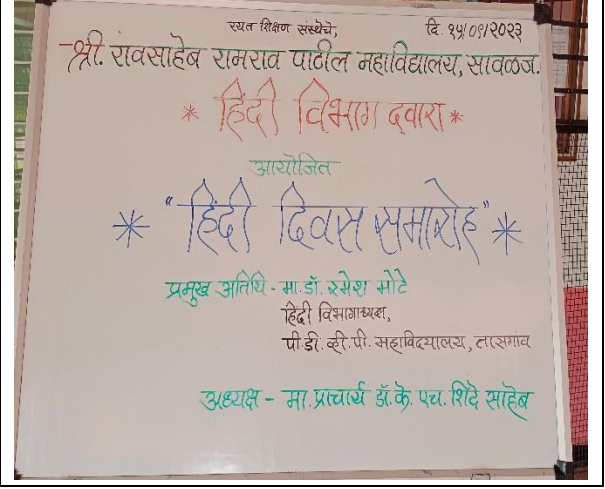 रयत शिक्षण संस्थेचे, दि. १५/०९/२०२३
श्री. रावसाहेब रामराव पाटील महाविद्यालय, सावळज.
* हिंदी विभाग द्वारा *
आयोजित
* "हिंदी दिवस समारोह" *
प्रमुख अतिथि - मा. डॉ. रमेश मोटे
हिंदी विभागाध्यक्ष,
पी. डी. व्ही. पी. महाविद्यालय, तासगांव
अध्यक्ष - मा. प्राचार्य डॉ. के. एच. शिंदे साहेब